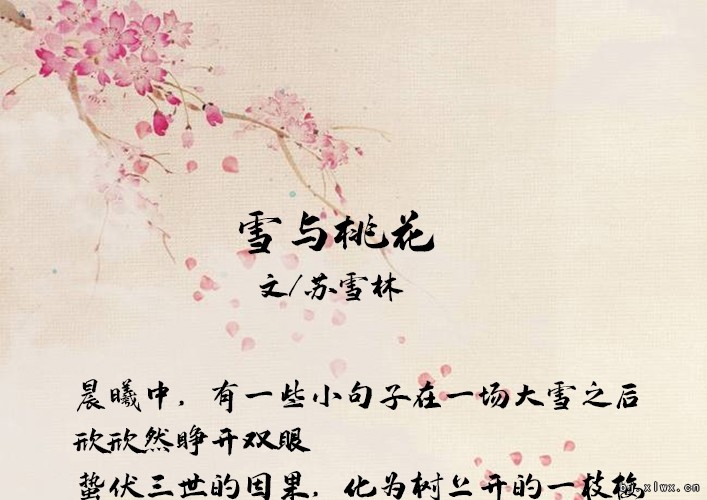 雪与桃花
文/苏雪林
晨曦中，有一些小句子在一场大雪之后
欣欣然睁开双眼
蛰伏三世的因果，化为树上开的一枝桃
bg.xlwx.cn